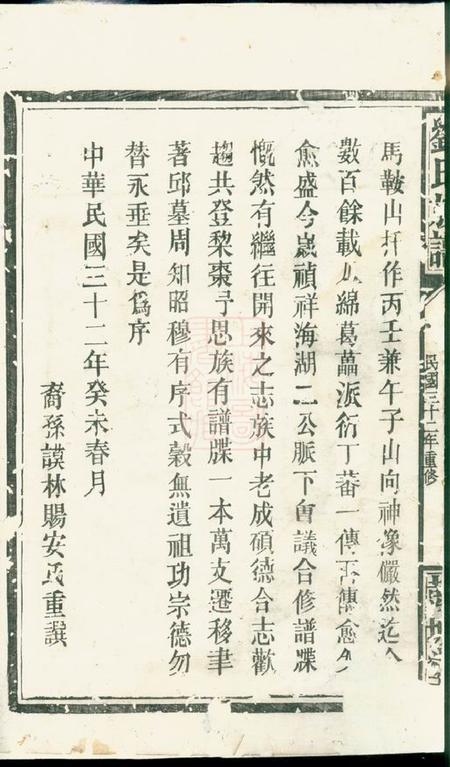 劉氏族譜
民國三十二年重修
馬鞍山扦作丙壬兼午子山向神像儼然迄今
數百餘載瓜綿葛藟派衍丁蕃一傳再傳愈久
愈盛今歲禎祥海湖二公脈下會議合修譜牒
慨然有繼往開來之志族中老成碩德合志歡
趨共登棃棗予思族有譜牒一本萬支遷移聿
著邱墓周知昭穆有序式榖無遺祖功宗德勿
替永垂矣是爲序
中華民國三十二年癸未春月
裔孫謨林賜安氏重譔